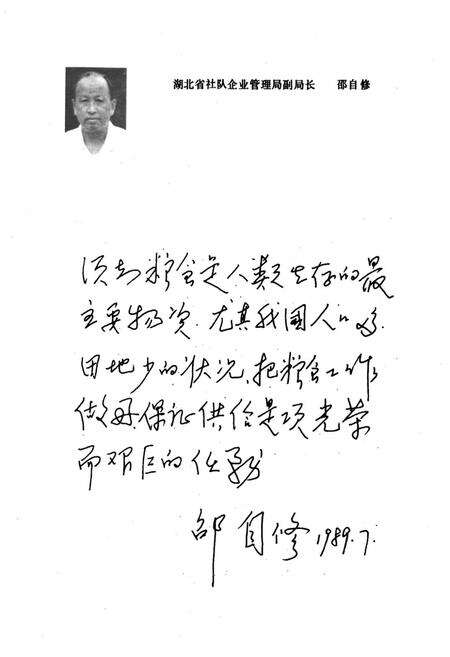 湖北省社队企业管理局副局长 邵自修
须知粮食是人类生存的最
主要物资.尤其我国人口多.
田地少的状况,把粮食工作
做好保证供给是项光荣
而艰巨的任务
邵自修 1989.7.